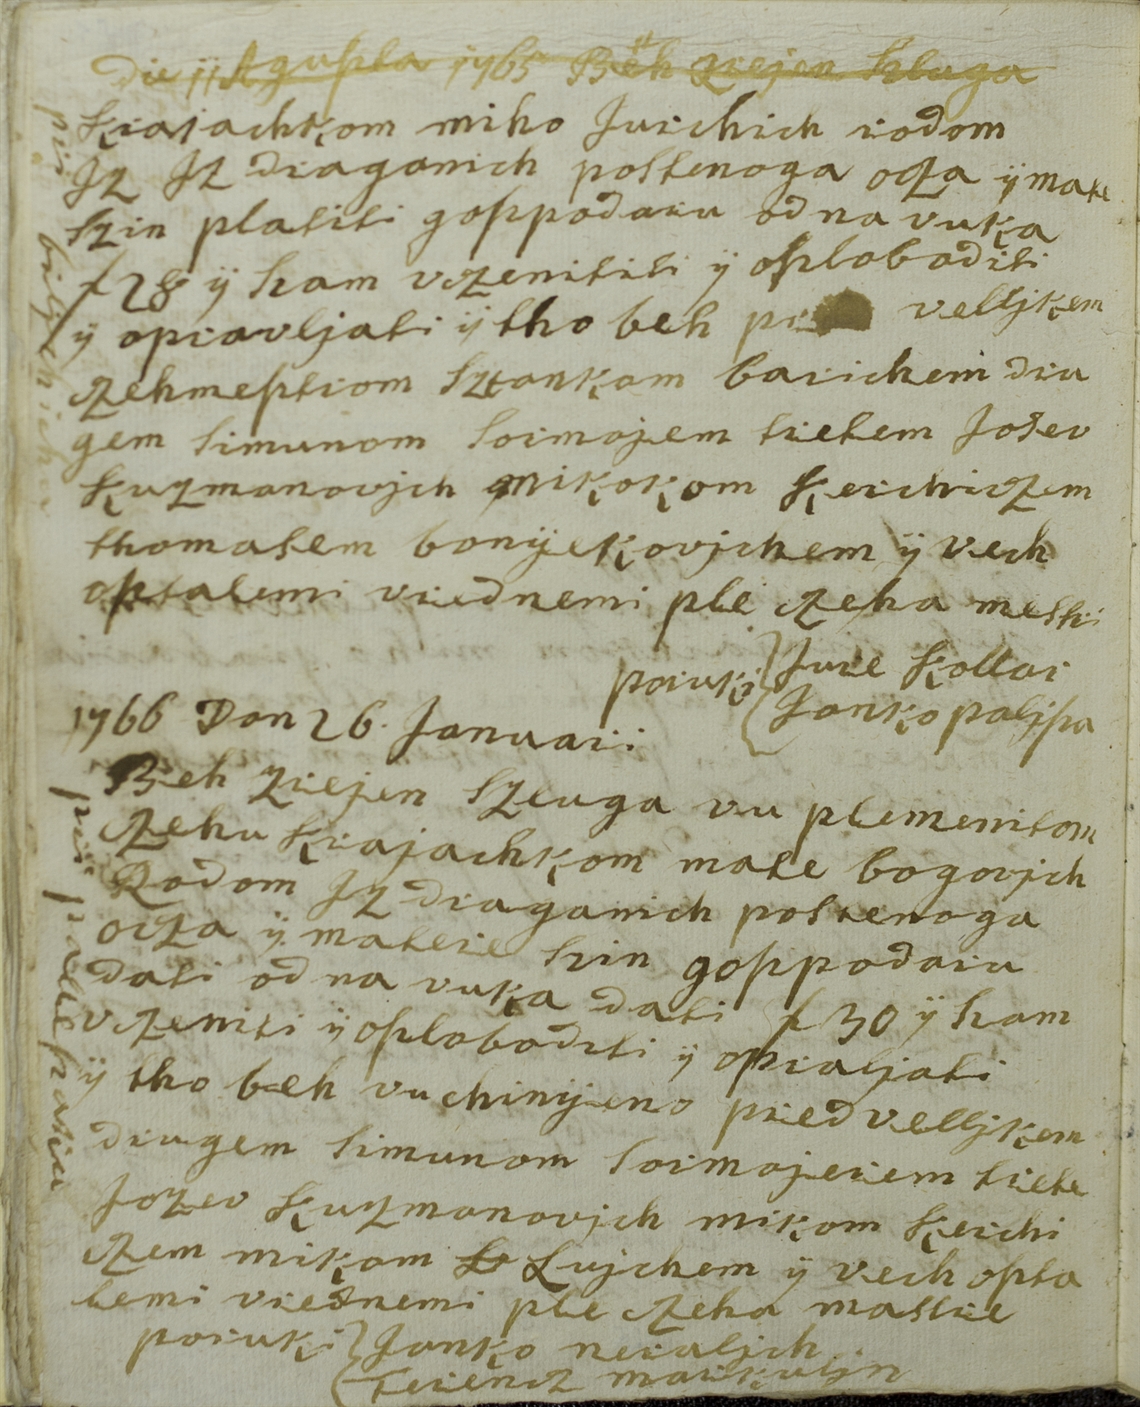 Die 11 Agusta 1765 Beh zrejen Sluga
Krajachkom miho Jurchich rodom
Jz Jz draganich postenoga ocza ÿ mate
szin platiti goszpodaru od na vuka
f 28 ÿ ham vczenititi ÿ oszloboditi
ÿ opravljati ÿ tho beh pr velljkem
czehmesztrom Sztankom barichem dru
gem simunom soimajem tretem Josev
Kuzmanovjch mikokom Kerchiczem
thomasem bonÿekovjchem ÿ vech
osztalemi vrednemi ple czeha mestri
poruki Jure Kollar
Janko paljsza
1766 Dan 26. Januari
Beh zrejen Szluga vu plemenitom
Czehu Krajachkom mate bogovjch
Rodom Jz draganich postenoga
ocza ÿ matere szin goszpodaru
dati od na vuka dati f 30 ÿ ham
vczeniti ÿ oszloboditi ÿ opraljati
ÿ tho beh vuchinÿeno pred velljkem
drugem simunom soimajerem trete
Jozev Kuzmanovjch mikom Kerchi
czem mikom Lujchem ÿ vech oszta
lemi vrednemi ple czeha mastre
poruki Janko neraljch
ferencz markuljn